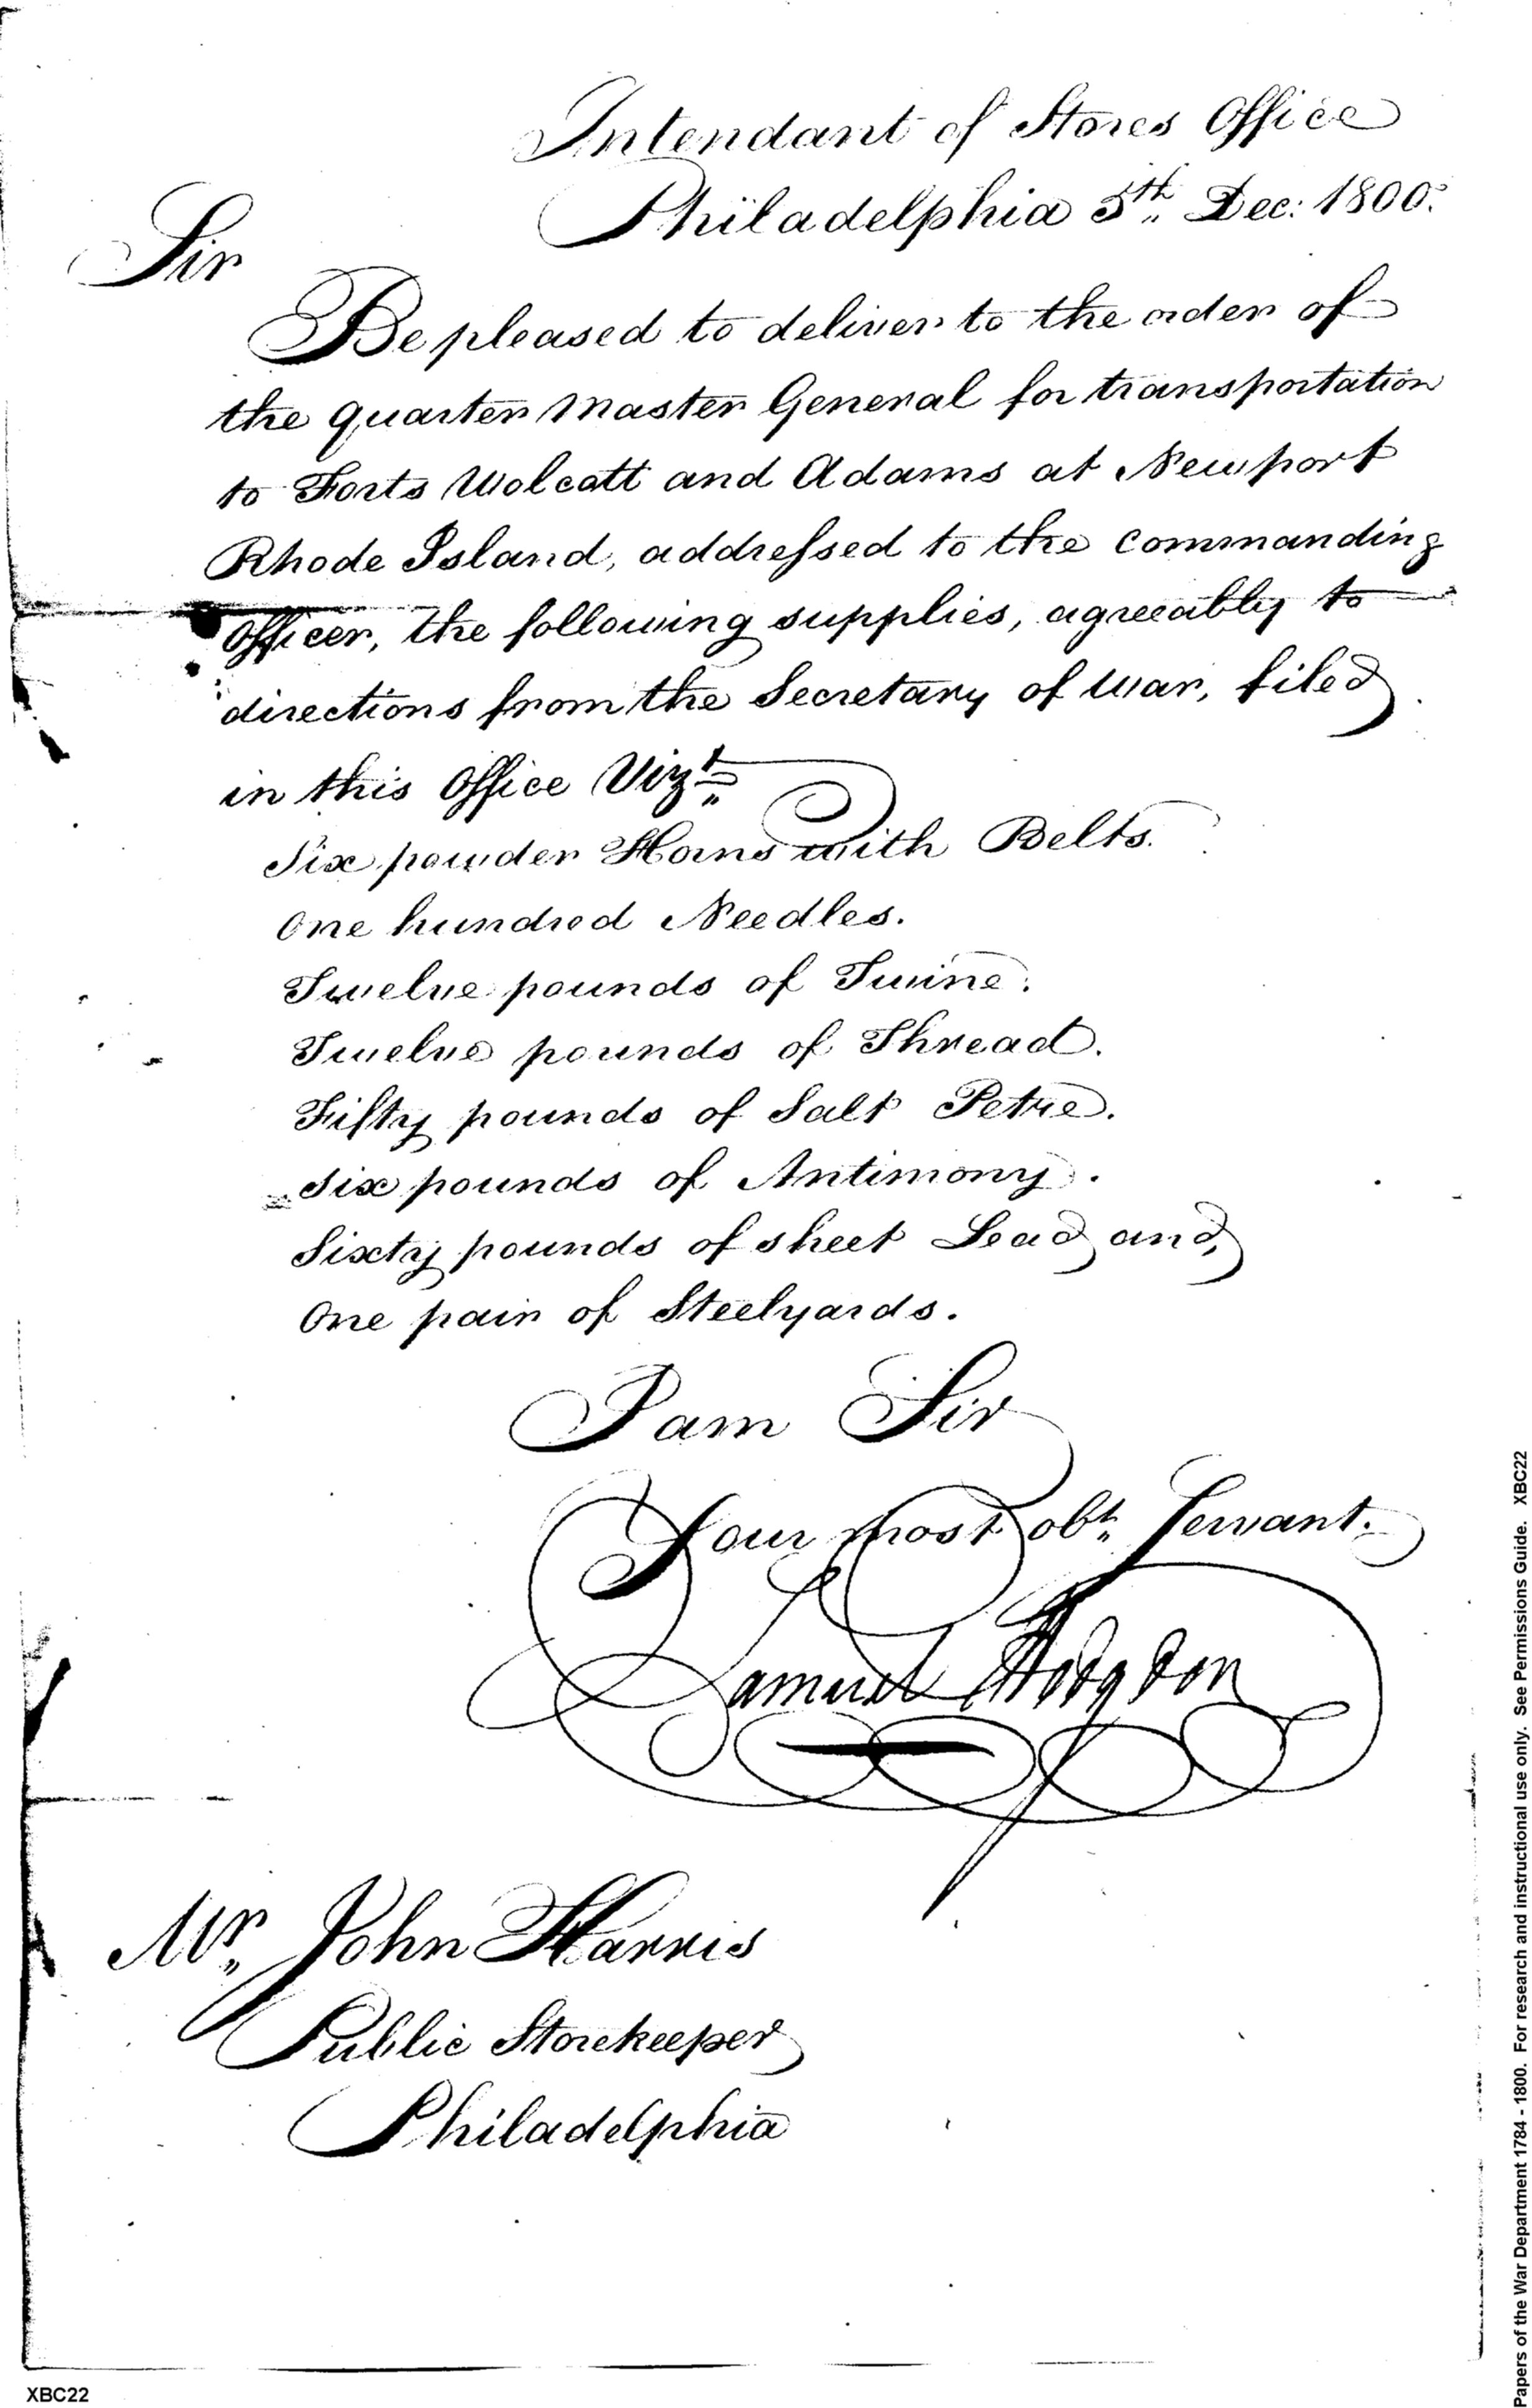 Intendant of Stores Office
Philadelphia 5th Dec: 1800.
Sir
Be pleased to deliver to the order of
the quarter Master General for transportation
to Forts Wolcott and Adams at Newport
Rhode Island, addressed to the commanding
Officer, the following supplies, agreeably to
directions from the Secretary of War, filed
in this Office Vizt
Six powder Horns with Belts.
One hundred Needles.
Twelve pounds of Twine.
Twelve pounds of Thread.
Fifty pounds of Salt Petre.
Six pounds of Antimony.
Sixty pounds of sheet Lead and,
One pair of Steelyards.
I am Sir
Your most obt Servant.
Samuel Hodgdon
Mr John Harris
Public Storekeeper
Philadelphia
XBC22
Papers of the War Department 1784 - 1800. For research and instructional use only. See Permissions Guide. XBC22